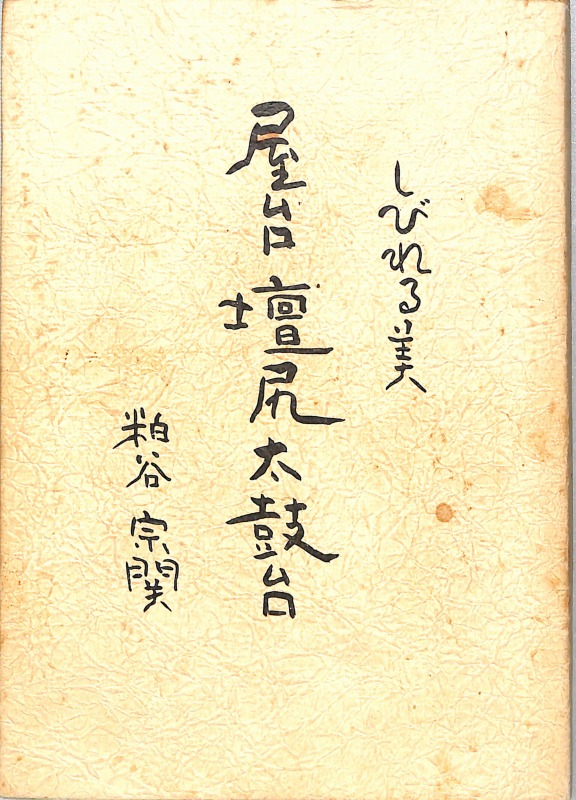 しびれる美
屋台 壇尻 太鼓台
粕谷 宗関